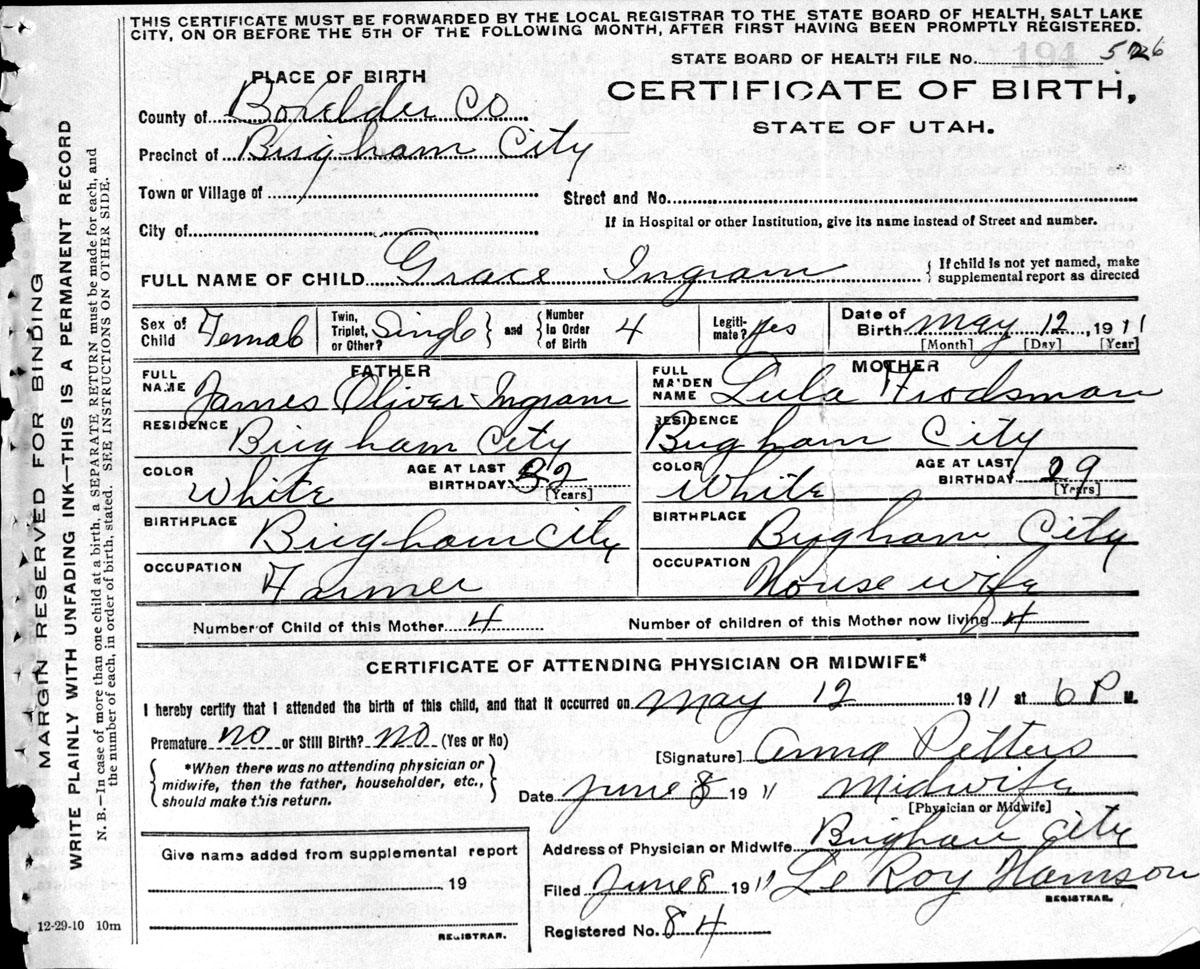 THIS CERTIFICATE MUST BE FORWARDED BY THE LOCAL REGISTRAR TO THE STATE BOARD OF HEALTH, SALT LAKE
CITY, ON OR BEFORE THE 5TH OF THE FOLLOWING MONTH, AFTER FIRST HAVING BEEN PROMPTLY REGISTERED.
STATE BOARD OF HEALTH FILE No. 526
PLACE OF BIRTH
CERTIFICATE OF BIRTH,
STATE OF UTAH.
County of Boxelder Co
Precinct of Brigham City
Town or Village of
Street and No.
City of
If in Hospital or other Institution, give its name instead of Street and number.
FULL NAME OF CHILD Grace Ingram { If child is not yet named, make
supplemental report as directed
Sex of Child Female
Twin, Triplet, or Other? Single } and { Number In Order of Birth 4
Legitimate? yes
Date of Birth May 12, 1911
[Month] [Day] [Year]
FATHER
FULL NAME James Oliver Ingram
RESIDENCE Brigham City
COLOR White AGE AT LAST BIRTHDAY 32 [Years]
BIRTHPLACE Brigham City
OCCUPATION Farmer
MOTHER
FULL MAIDEN NAME Lula Frodsman
RESIDENCE Brigham City
COLOR White AGE AT LAST BIRTHDAY 29 [Years]
BIRTHPLACE Brigham City
OCCUPATION House wife
Number of Child of this Mother 4 Number of children of this Mother now living 4
CERTIFICATE OF ATTENDING PHYSICIAN OR MIDWIFE*
I hereby certify that I attended the birth of this child, and that it occurred on May 12 1911 at 6 P M.
Premature no or Still Birth? no (Yes or No)
[Signature] Anna Petters
{ *When there was no attending physician or
midwife, then the father, householder, etc.,
should make this return. }
Date June 8 1911 Midwife
[Physician or Midwife]
Address of Physician or Midwife Brigham City
Give name added from supplemental report
19
REGISTRAR.
Filed June 8 1911 Le Roy Hamson
REGISTRAR.
Registered No. 84
12-29-10 10m
MARGIN RESERVED FOR BINDING
WRITE PLAINLY WITH UNFADING INK—THIS IS A PERMANENT RECORD
N. B.—In case of more than one child at a birth, a SEPARATE RETURN must be made for each, and
the number of each, in order of birth, stated. SEE INSTRUCTIONS ON OTHER SIDE.